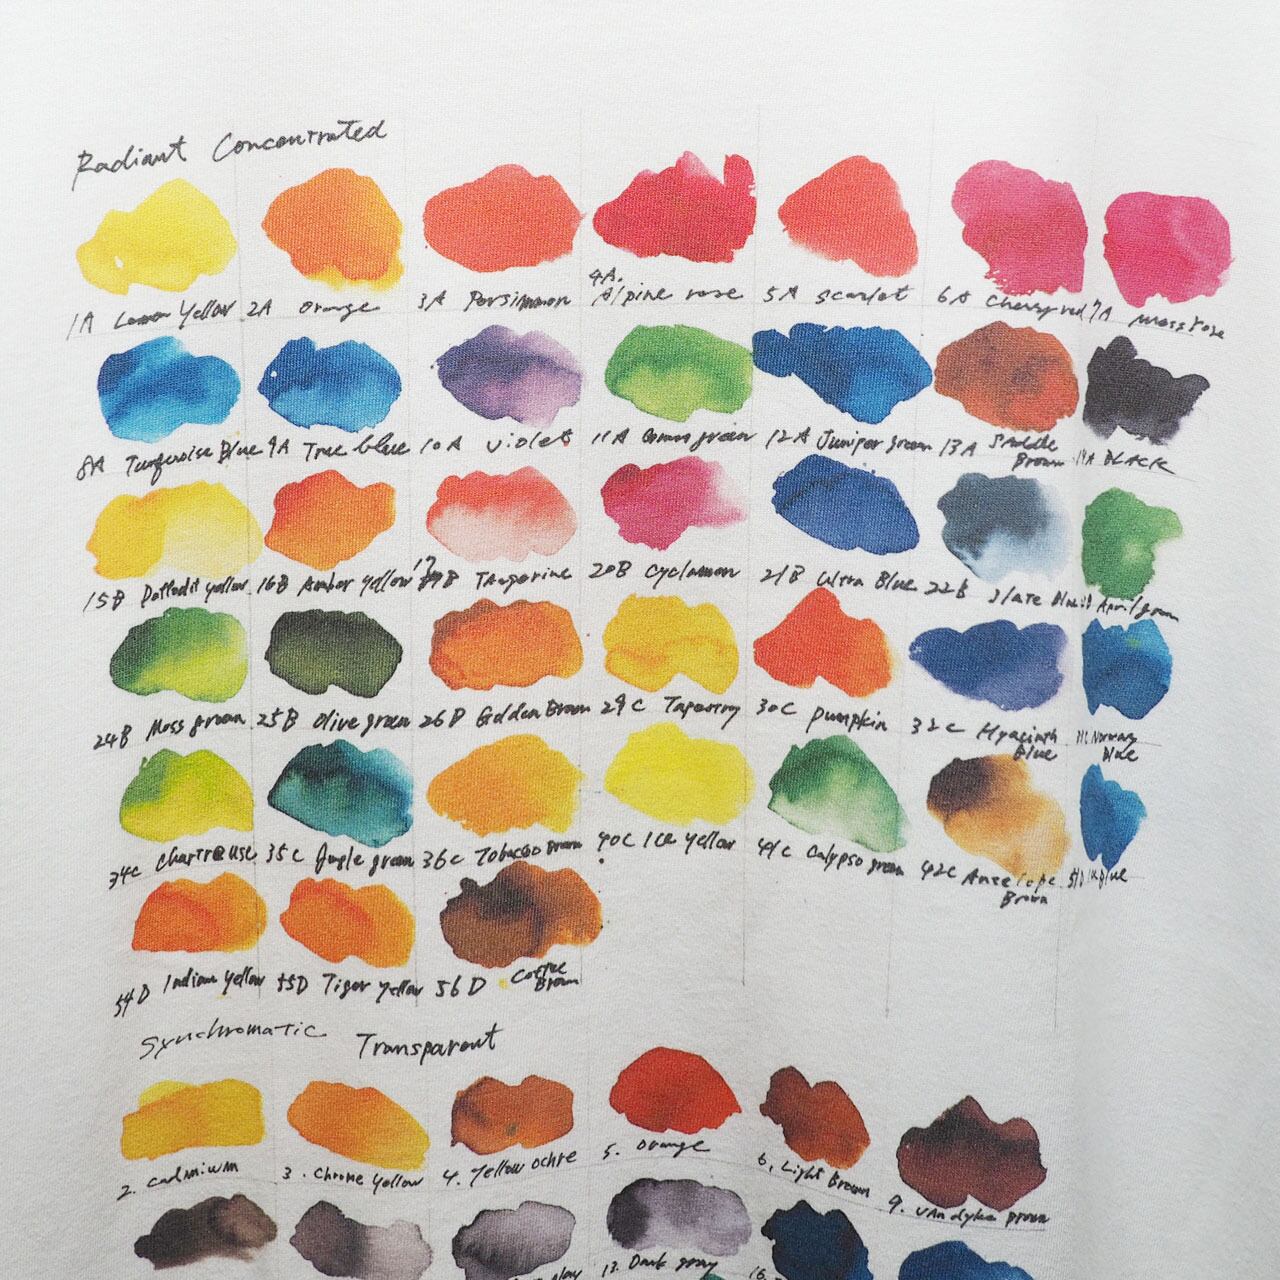 Radiant Concentrated
1A Lemon Yellow 2A Orange 3A Persimmon 4A. Alpine rose 5A Scarlet 6A Cherry red 7A Moss rose
8A Turquoise Blue 9A True blue 10A Violet 11A green 12A Juniper green 13A Saddle Brown 14A BLACK
15B Daffodil yellow 16B Amber yellow 19B Tangerine 20B Cyclamen 21B Ultra Blue 22B Slate April green
24B Moss green 25B Olive green 26B Golden Brown 29C Tapestry 30C Pumpkin 32C Hyacinth Blue Norway Blue
34C Chartreuse 35C Jungle green 36C Tobacco Brown 40C Ice Yellow 41C Calypso green 42C Antelope Brown Blue
54D Indian Yellow 55D Tiger Yellow 56D Coffee Brown
Synchromatic Transparent
2. Cadmium 3. Chrome Yellow 4. Yellow Ochre 5. Orange 6. Light Brown 9. Vandyke Brown
13. Dark gray 16.